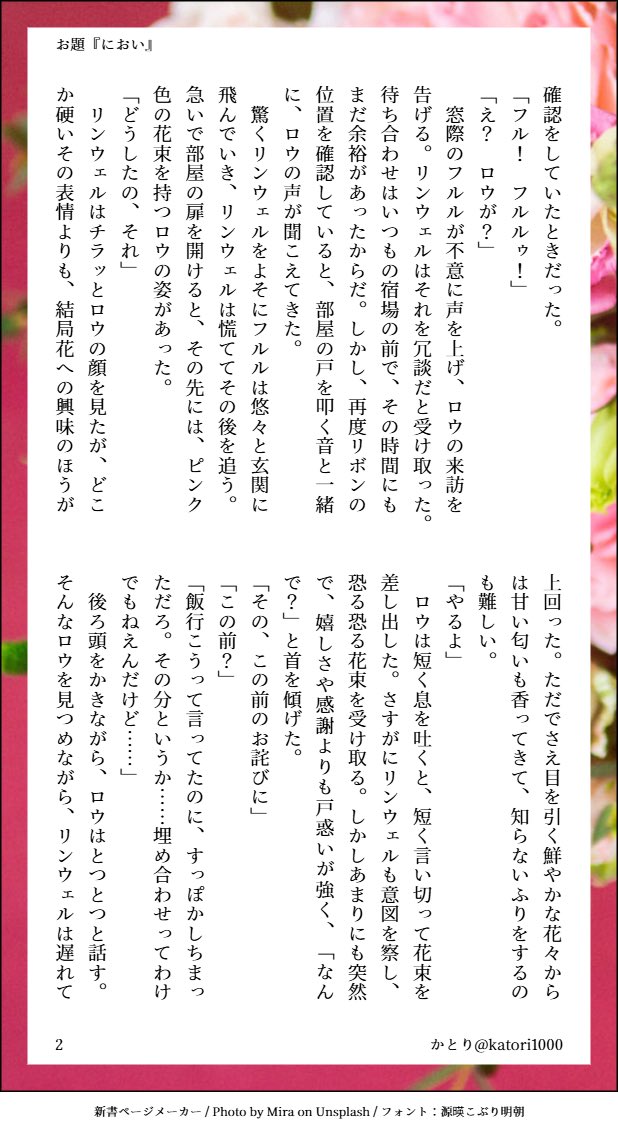 お題『におい』
確認をしていたときだった。
「フル！　フルルゥ！」
「え？　ロウが？」
　窓際のフルルが不意に声を上げ、ロウの来訪を
告げる。リンウェルはそれを冗談だと受け取った。
待ち合わせはいつもの宿場の前で、その時間にも
まだ余裕があったからだ。しかし、再度リボンの
位置を確認していると、部屋の戸を叩く音と一緒
に、ロウの声が聞こえてきた。
　驚くリンウェルをよそにフルルは悠々と玄関に
飛んでいき、リンウェルは慌ててその後を追う。
急いで部屋の扉を開けると、その先には、ピンク
色の花束を持つロウの姿があった。
「どうしたの、それ」
　リンウェルはチラッとロウの顔を見たが、どこ
か硬いその表情よりも、結局花への興味のほうが
上回った。ただでさえ目を引く鮮やかな花々から
は甘い匂いも香ってきて、知らないふりをするの
も難しい。
「やるよ」
　ロウは短く息を吐くと、短く言い切って花束を
差し出した。さすがにリンウェルも意図を察し、
恐る恐る花束を受け取る。しかしあまりにも突然
で、嬉しさや感謝よりも戸惑いが強く、「なん
で？」と首を傾げた。
「その、この前のお詫びに」
「この前？」
「飯行こうって言ってたのに、すっぽかしちまっ
ただろ。その分というか……埋め合わせってわけ
でもねえんだけど……」
　後ろ頭をかきながら、ロウはとつとつと話す。
そんなロウを見つめながら、リンウェルは遅れて
2
かとり@katori1000
新書ページメーカー / Photo by Mira on Unsplash / フォント：源暎こぶり明朝